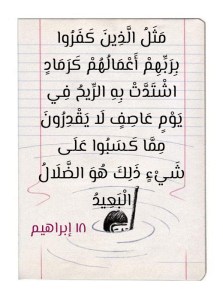 مَثَلُ الَّذِينَ كَفَرُوا
بِرَبِّهِمْ أَعْمَالُهُمْ كَرَمَادٍ
اشْتَدَّتْ بِهِ الرِّيحُ فِي
يَوْمٍ عَاصِفٍ لَا يَقْدِرُونَ
مِمَّا كَسَبُوا عَلَى
شَيْءٍ ذَلِكَ هُوَ الضَّلَالُ
الْبَعِيدُ
١٨ إبراهيم